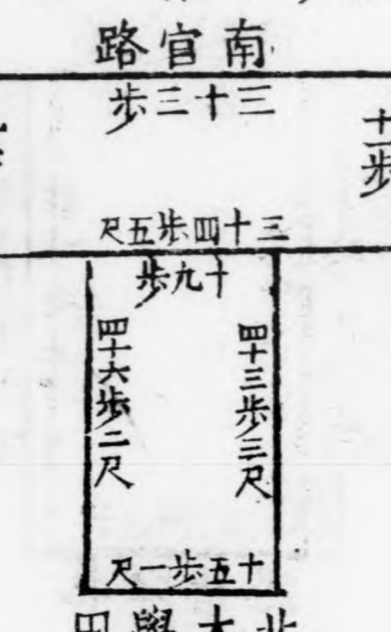 南官路
三十三步
十一步
三十四步五尺
十九步
四十三步三尺
四十六步二尺
十五步一尺
北本學田